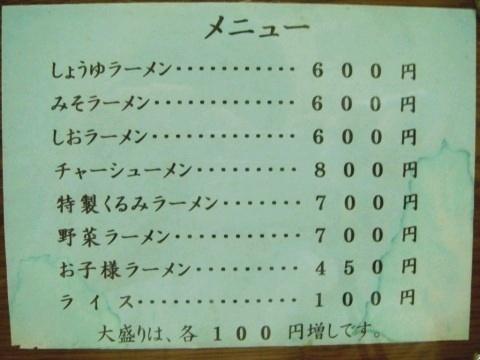 メニュー
しょうゆラーメン・・・・・・・・・・・６００円
みそラーメン・・・・・・・・・・・・・６００円
しおラーメン・・・・・・・・・・・・・６００円
チャーシューメン・・・・・・・・・・・８００円
特製くるみラーメン・・・・・・・・・・７００円
野菜ラーメン・・・・・・・・・・・・・７００円
お子様ラーメン・・・・・・・・・・・・４５０円
ライス・・・・・・・・・・・・・・・・１００円
大盛りは、各１００円増しです。